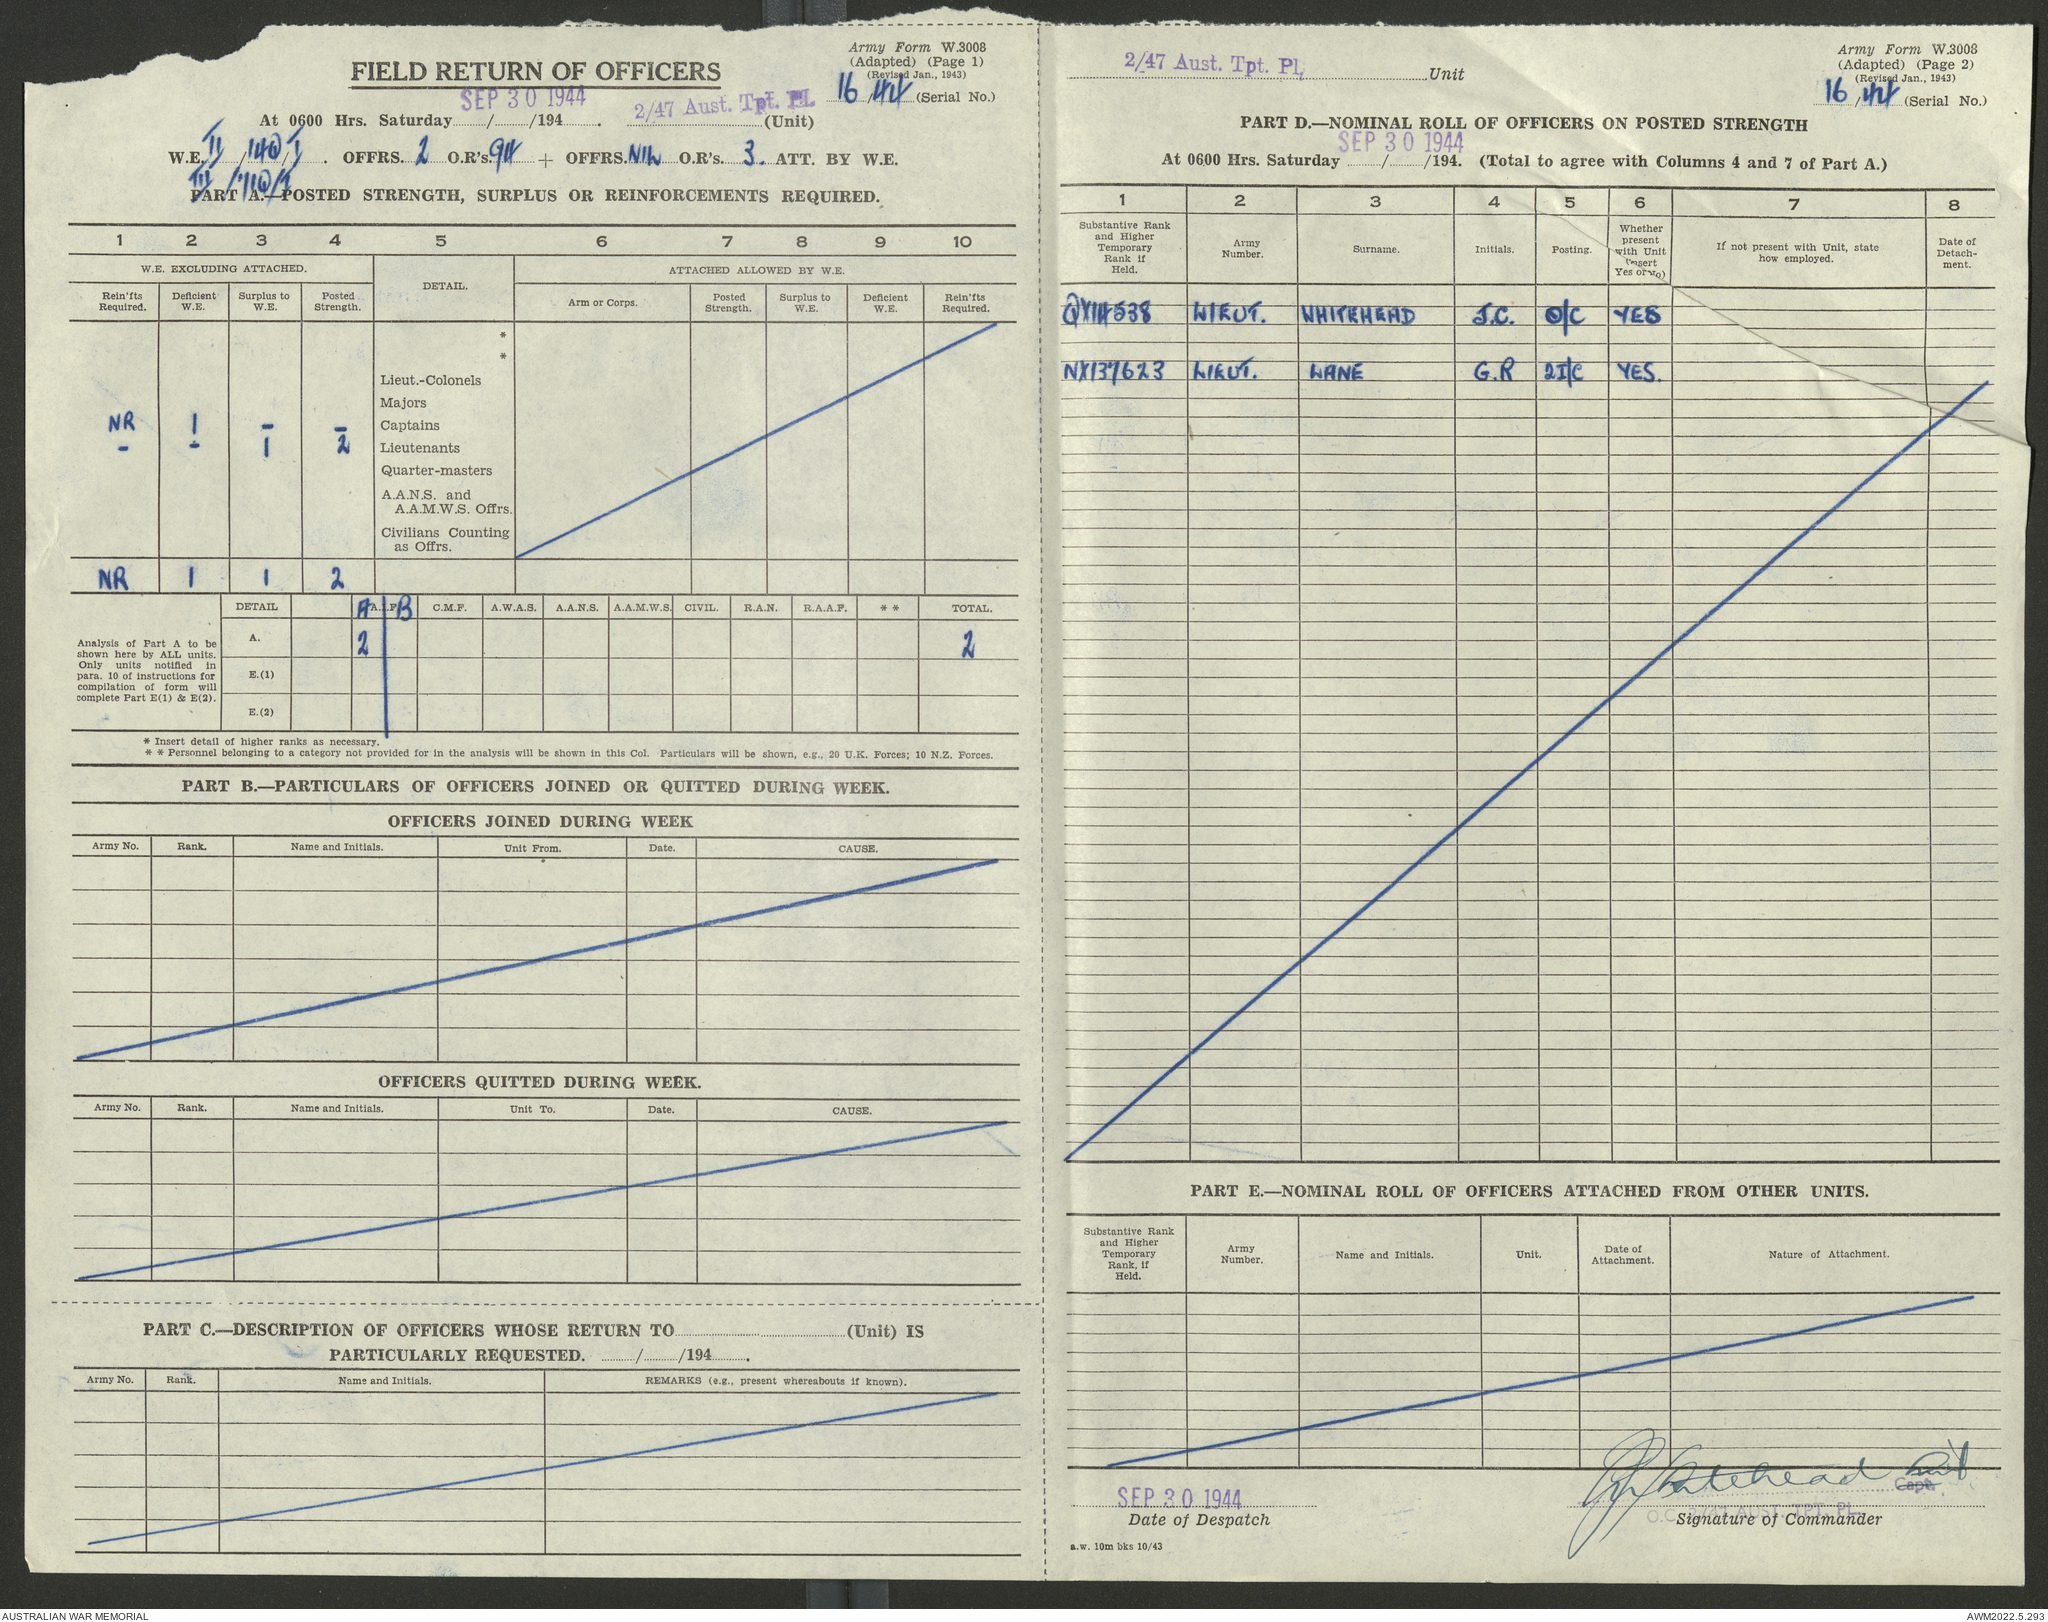 Army Form W.3008
(Adapted) (Page 1)
(Revised Jan., 1943)
16/44 (Serial No.)
FIELD RETURN OF OFFICERS
SEP 30 1944
2/47 Aust. Tpt. PL
At 0600 Hrs. Saturday....../....../194...... . ......(Unit)
W.E. II/140/I. OFFRS. 2 O.R's. 94 + OFFRS. NIL O.R's. 3. ATT. BY W.E.
III /710/I
PART A.—POSTED STRENGTH, SURPLUS OR REINFORCEMENTS REQUIRED.
1 2 3 4 5 6 7 8 9 10
W.E. EXCLUDING ATTACHED. DETAIL. ATTACHED ALLOWED BY W.E.
Rein'fts Required. Deficient W.E. Surplus to W.E. Posted Strength. Arm or Corps. Posted Strength. Surplus to W.E. Deficient W.E. Rein'fts Required.
*
*
Lieut.-Colonels
Majors
NR 1 – – Captains
– – 1 2 Lieutenants
Quarter-masters
A.A.N.S. and
A.A.M.W.S. Offrs.
Civilians Counting
as Offrs.
NR 1 1 2
DETAIL A A.I.F. B C.M.F. A.W.A.S. A.A.N.S. A.A.M.W.S. CIVIL. R.A.N. R.A.A.F. * * TOTAL.
Analysis of Part A to be
shown here by ALL units.
Only units notified in
para. 10 of instructions for
compilation of form will
complete Part E(1) & E(2).
A. 2 2
E.(1)
E.(2)
* Insert detail of higher ranks as necessary.
* * Personnel belonging to a category not provided for in the analysis will be shown in this Col. Particulars will be shown, e.g., 20 U.K. Forces; 10 N.Z. Forces.
PART B.—PARTICULARS OF OFFICERS JOINED OR QUITTED DURING WEEK.
OFFICERS JOINED DURING WEEK
Army No. Rank. Name and Initials. Unit From. Date. CAUSE.
OFFICERS QUITTED DURING WEEK.
Army No. Rank. Name and Initials. Unit To. Date. CAUSE.
PART C.—DESCRIPTION OF OFFICERS WHOSE RETURN TO......(Unit) IS
PARTICULARLY REQUESTED. ....../....../194...... .
Army No. Rank. Name and Initials. REMARKS (e.g., present whereabouts if known).
2/47 Aust. Tpt. PL Unit
Army Form W.3008
(Adapted) (Page 2)
(Revised Jan., 1943)
16/44 (Serial No.)
PART D.—NOMINAL ROLL OF OFFICERS ON POSTED STRENGTH
SEP 30 1944
At 0600 Hrs. Saturday ....../....../194. (Total to agree with Columns 4 and 7 of Part A.)
1 2 3 4 5 6 7 8
Substantive Rank and Higher Temporary Rank if Held. Army Number. Surname. Initials. Posting. Whether present with Unit (Insert Yes or No) If not present with Unit, state how employed. Date of Detachment.
QX14538 LIEUT. WHITEHEAD J.C. O/C YES
NX137623 LIEUT. LANE G.R 2I/C YES.
PART E.—NOMINAL ROLL OF OFFICERS ATTACHED FROM OTHER UNITS.
Substantive Rank and Higher Temporary Rank, if Held. Army Number. Name and Initials. Unit. Date of Attachment. Nature of Attachment.
Whitehead Lieut
Capt.
SEP 30 1944
O.C. 2/47 AUST. TPT. PL.
Date of Despatch Signature of Commander
a.w. 10m bks 10/43
AUSTRALIAN WAR MEMORIAL AWM2022.5.293